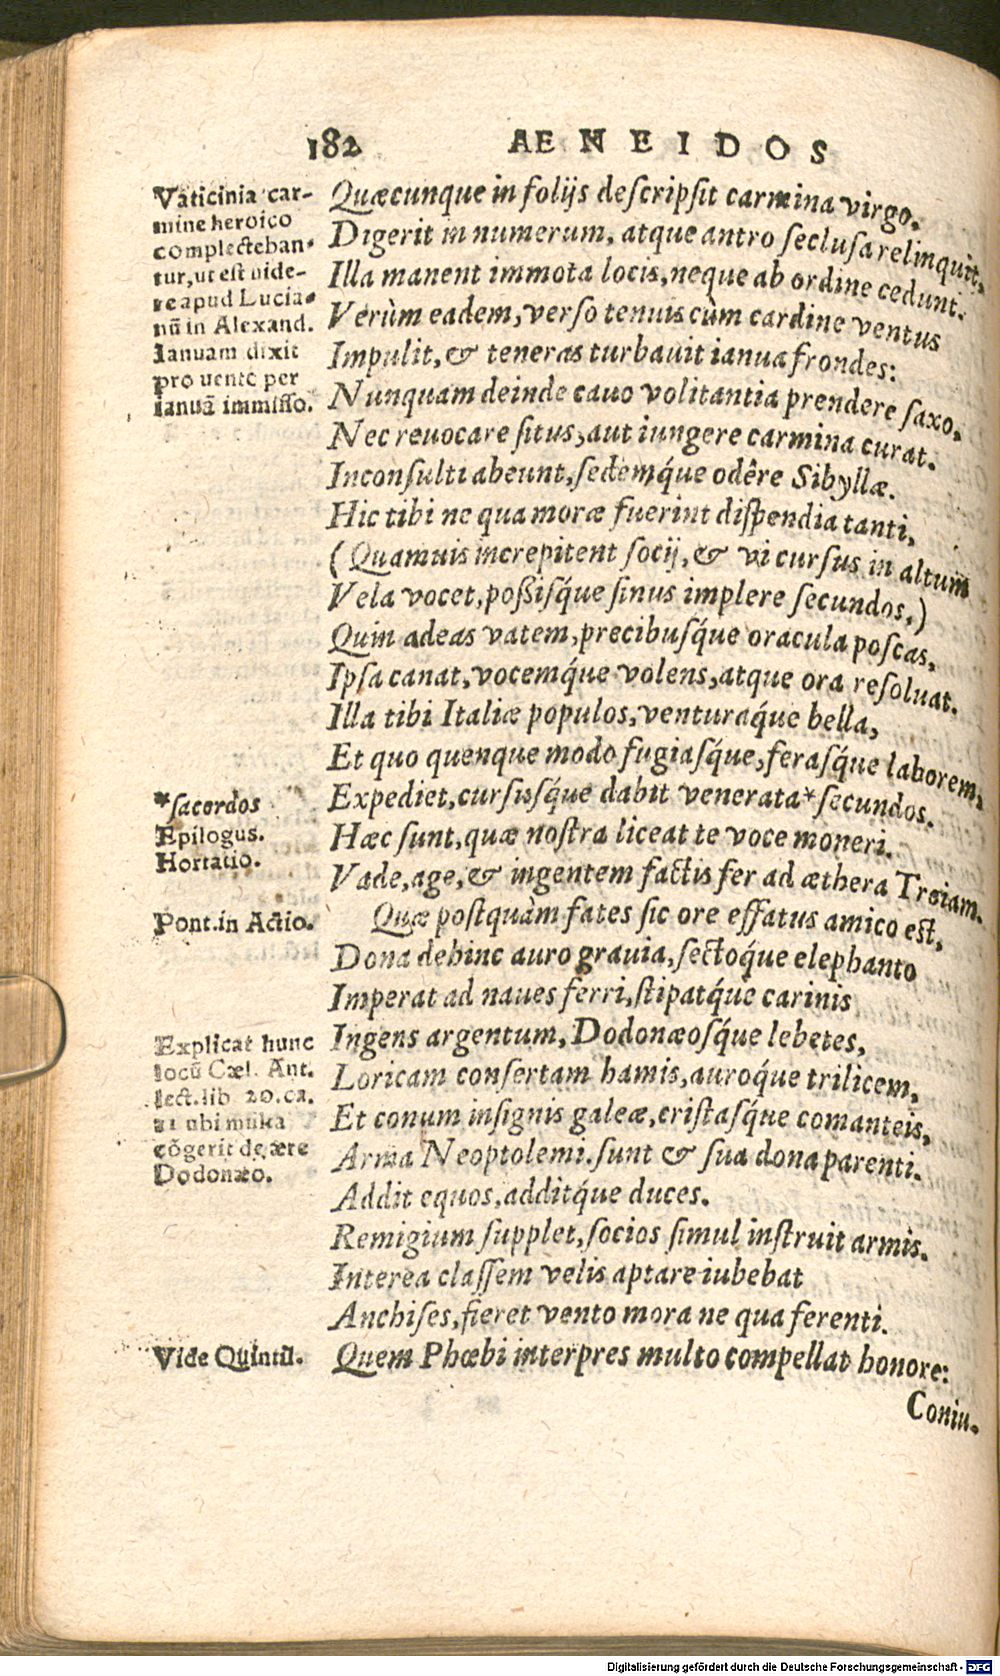 182 AENEIDOS
Vaticinia car-
mine heroico
complecteban-
tur, ut est uide-
re apud Lucia-
nũ in Alexand.
Ianuam dixit
pro uento per
ianuã immisso.
Quæcunque in folijs descripsit carmina virgo,
Digerit in numerum, atque antro seclusa relinquit,
Illa manent immota locis, neque ab ordine cedunt.
Verùm eadem, verso tenuis cùm cardine ventus
Impulit, & teneras turbauit ianua frondes:
Nunquam deinde cauo volitantia prendere saxo,
Nec reuocare situs, aut iungere carmina curat.
Inconsulti abeunt, sedemq́ue odêre Sibyllæ.
Hic tibi ne qua moræ fuerint dispendia tanti,
(Quamuis increpitent socij, & vi cursus in altum
Vela vocet, poßisq́ue sinus implere secundos,)
Quin adeas vatem, precibusq́ue oracula poscas,
Ipsa canat, vocemq́ue volens, atque ora resoluat.
Illa tibi Italiæ populos, venturaq́ue bella,
Et quo quenque modo fugiasq́ue, ferasq́ue laborem,
*sacerdos
Expediet, cursusq́ue dabit venerata* secundos.
Epilogus.
Hæc sunt, quæ nostra liceat te voce moneri.
Hortatio.
Vade, age, & ingentem factis fer ad æthera Troiam.
Pont. in Actio.
Quæ postquàm fates sic ore effatus amico est,
Dona dehinc auro grauia, sectoq́ue elephanto
Imperat ad naues ferri, stipatq́ue carinis
Explicat hunc
locũ Cæl. Ant.
lect. lib 20. ca.
21 ubi multa
cõgerit de ære
Dodonæo.
Ingens argentum, Dodonæosq́ue lebetes,
Loricam consertam hamis, auroq́ue trilicem,
Et conum insignis galeæ, cristasq́ue comanteis,
Arma Neoptolemi. sunt & sua dona parenti.
Addit equos, additq́ue duces.
Remigium supplet, socios simul instruit armis.
Interea classem velis aptare iubebat
Anchises, fieret vento mora ne qua ferenti.
Vide Quintil.
Quem Phœbi interpres multo compellat honore:
Coniu-
Digitalisierung gefördert durch die Deutsche Forschungsgemeinschaft - DFG